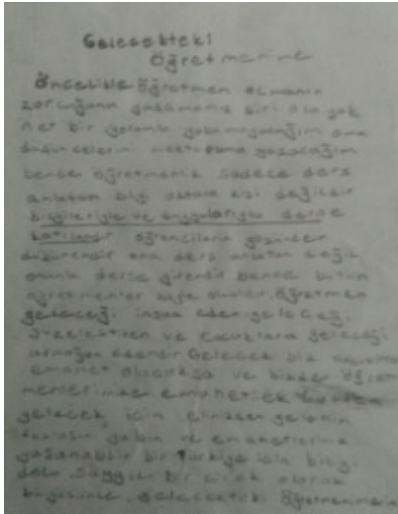 Gelecekteki
Öğretmenime
Öncelikle öğretmen olmanın
zorluğunu yaşamamış biri olarak
net bir yorumla ama
düşüncelerimi mektubuma yazacağım
bence öğretmenlik sadece ders
anlatan bilgi aktaran kişi değildir
bilgileriyle ve duygularıyla derse
katılandır öğrencilerin gözünden
ona ders anlatan değil
onunla derse girendir bence bütün
öğretmenler böyle olmalıdır. Öğretmen
geleceği inşaa eden geleceği
güzelleştiren ve çocuklara geleceği
armağan edendir. Gelecek biz
emanet olacaksa ve bizde öğret
menlerimize emanetsek
gelecek için elinizden gelenin
ve emanetlerine
yaşanabilir bir Türkiye için bilgi
dolu, saygılı bir olarak
gelecekteki Öğretmenime